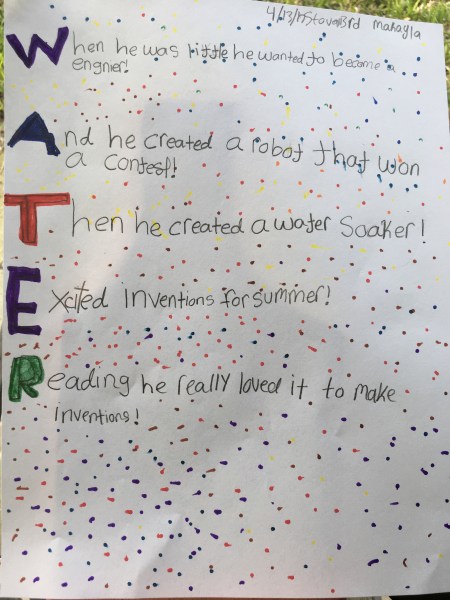 4/13/ 3rd Makayla
When he was little he wanted to become a
engnier!
And he created a robot that won
a contest!
Then he created a water Soaker!
Excited Inventions for summer!
Reading he really loved it to make
Inventions!